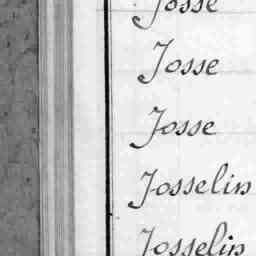 Josse
Josse
Josse
Josselin
Josselin